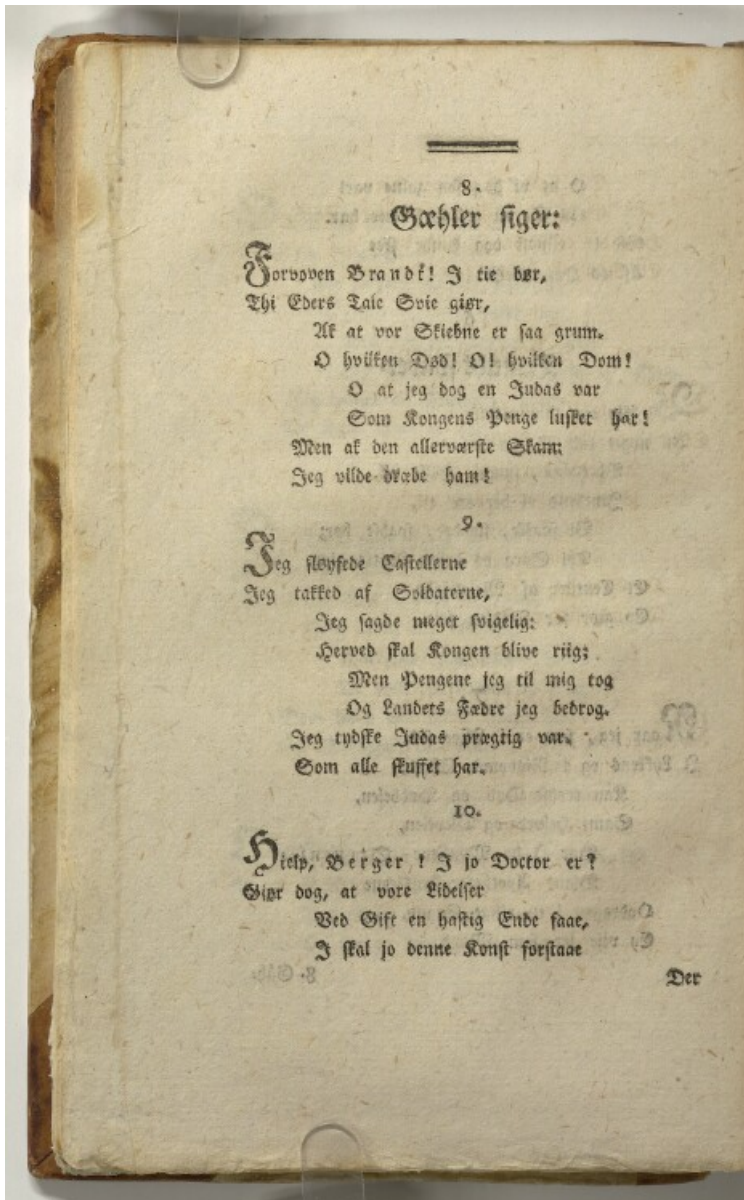 8.
Gæhler siger:
Forvoven Brandt! I tie bør,
Thi Eders Tale Svie giør,
Ak at vor Skiebne er saa grum.
O hvilken Død! O! hvilken Dom!
O at jeg dog en Judas var
Som Kongens Penge lusket har!
Men ak den allerværste Skam:
Jeg vilde dræbe ham!
9.
Jeg sløyfede Castellerne
Jeg takked af Soldaterne,
Jeg sagde meget svigelig:
Herved skal Kongen blive riig;
Men Pengene jeg til mig tog
Og Landets Fædre jeg bedrog.
Jeg tydske Judas prægtig var.
Som alle skuffet har.
10.
Hielp, Berger! I jo Doctor er?
Giør dog, at vore Lidelser
Ved Gift en hastig Ende faae,
I skal jo denne Konst forstaae
Der